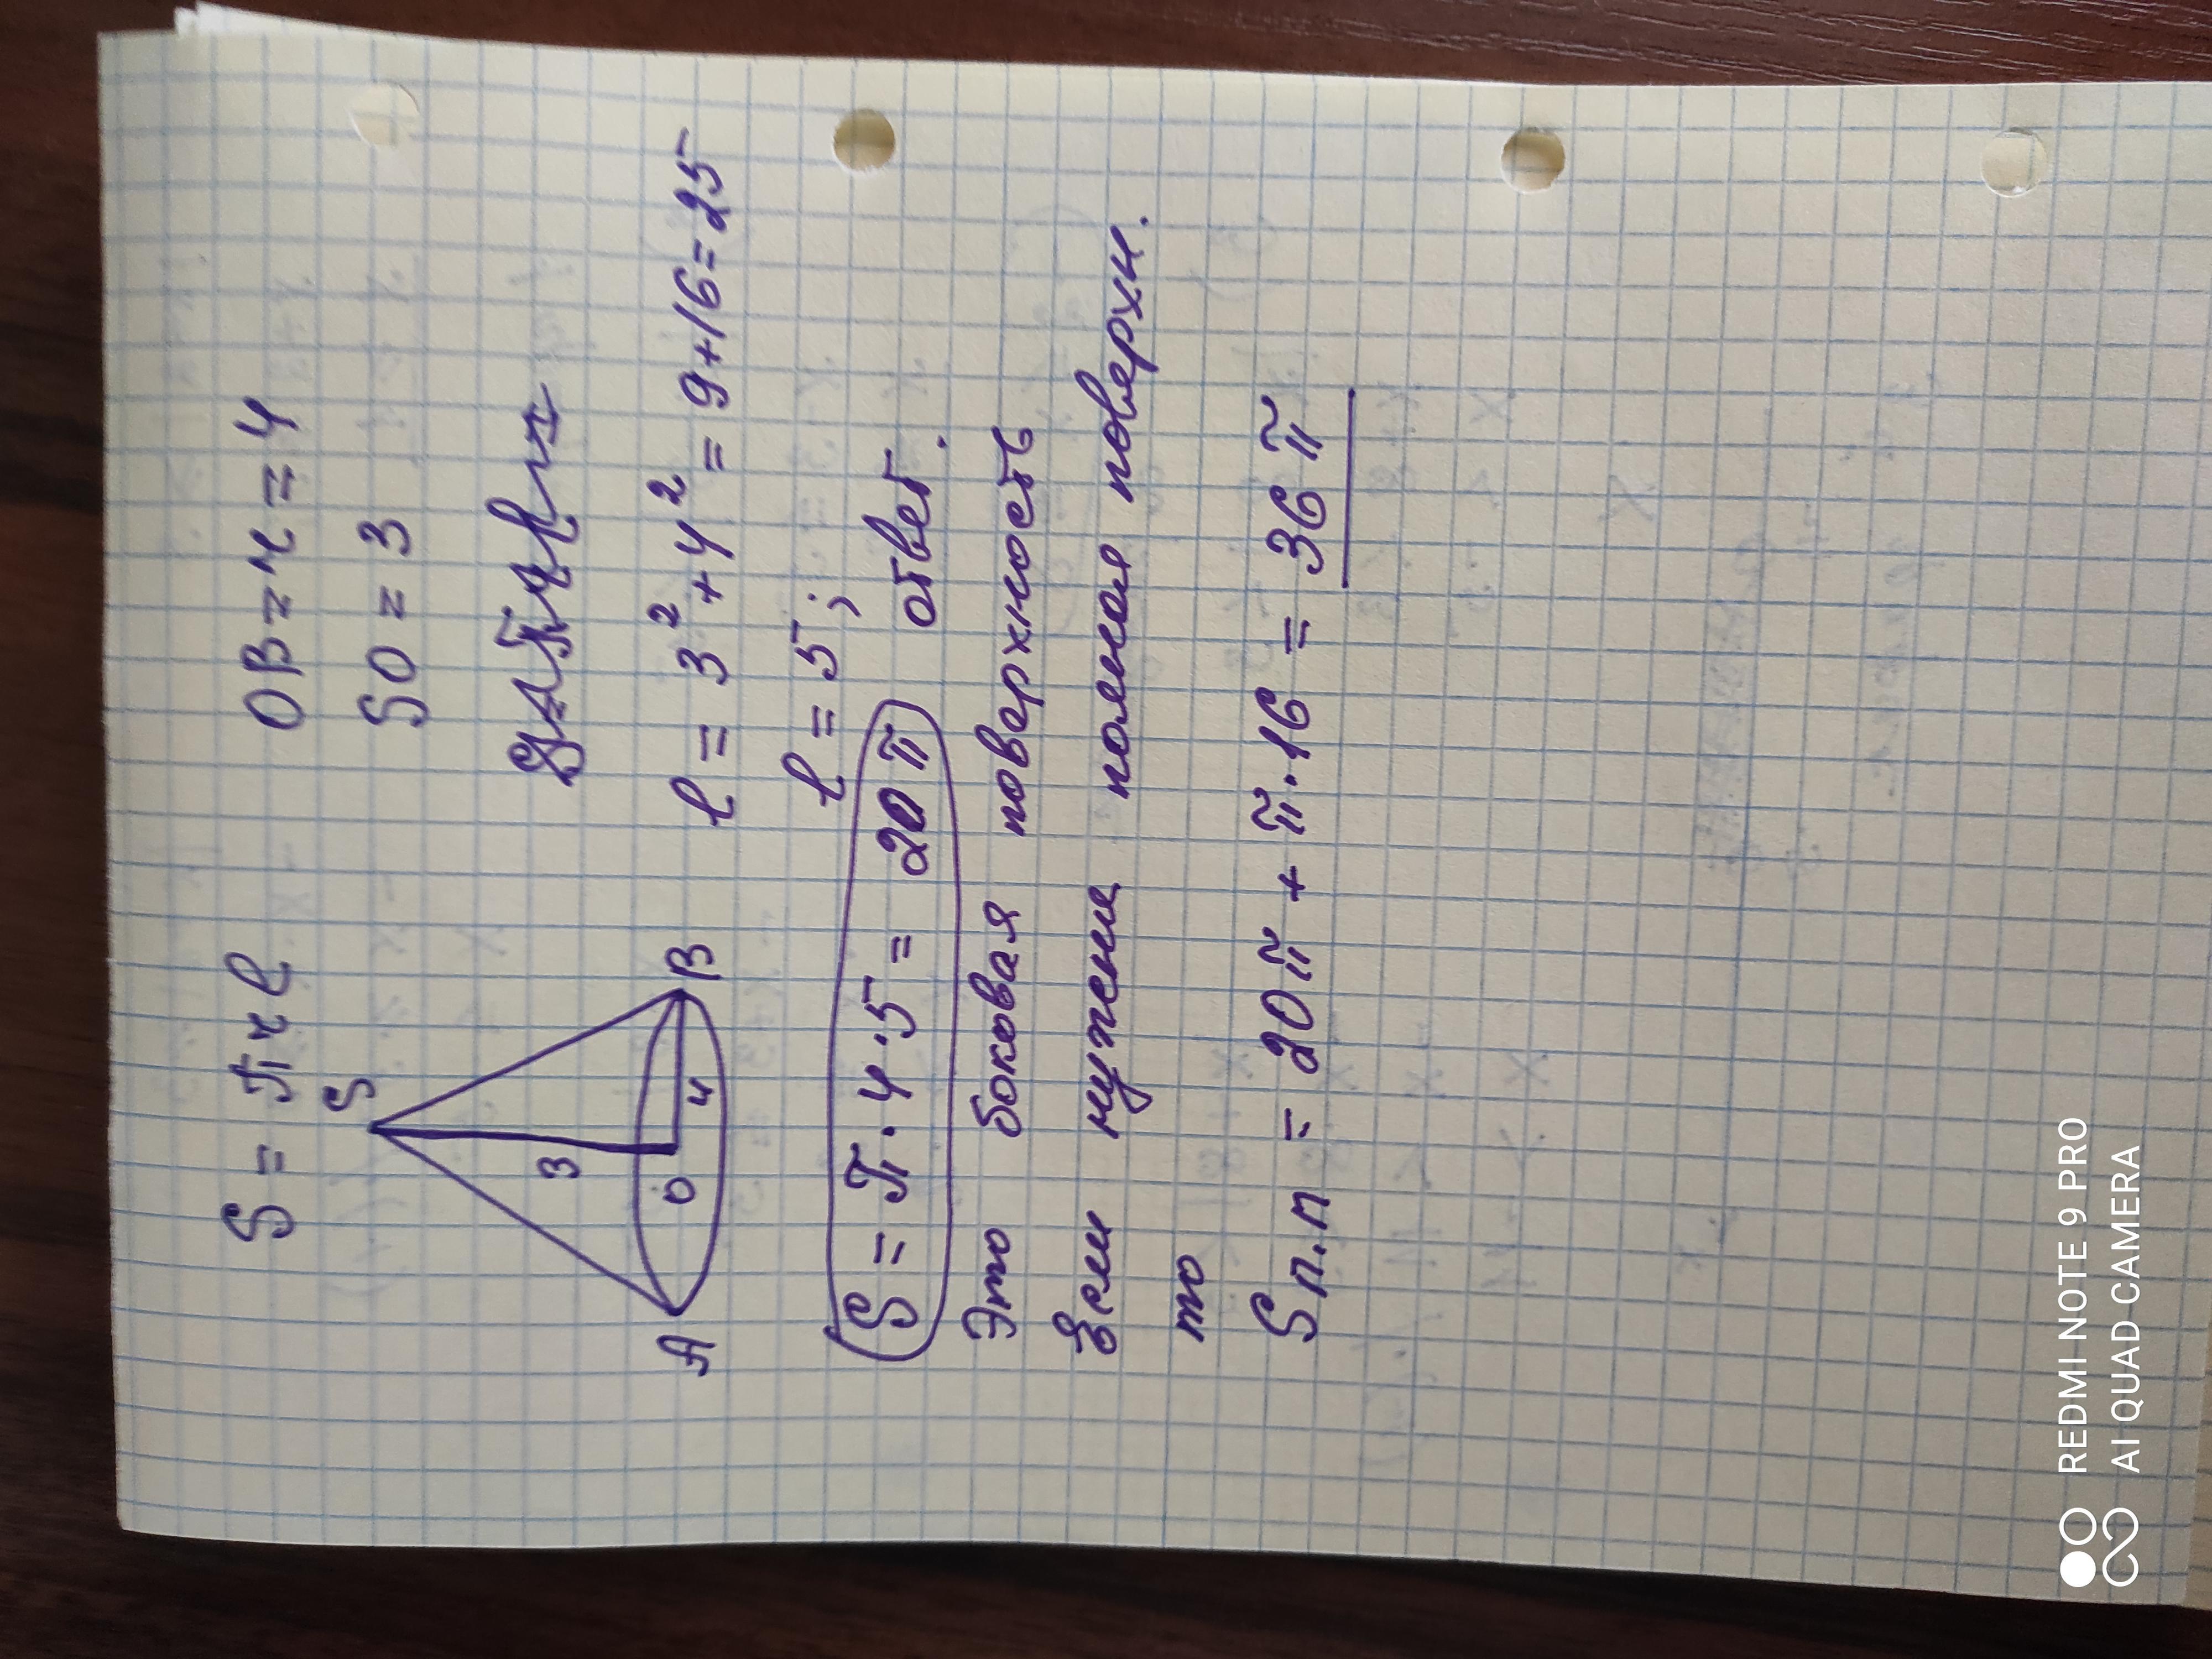 S = πrl
OB = r = 4
SO = 3
S
3
O
4
A
B
l = 3² + 4² = 9 + 16 = 25
l = 5;
S = π · 4 · 5 = 20 π
ответ.
Это боковая поверхность
Если нужена полная поверхн.
то
Sп.п = 20π + π · 16 = 36 π
REDMI NOTE 9 PRO
AI QUAD CAMERA